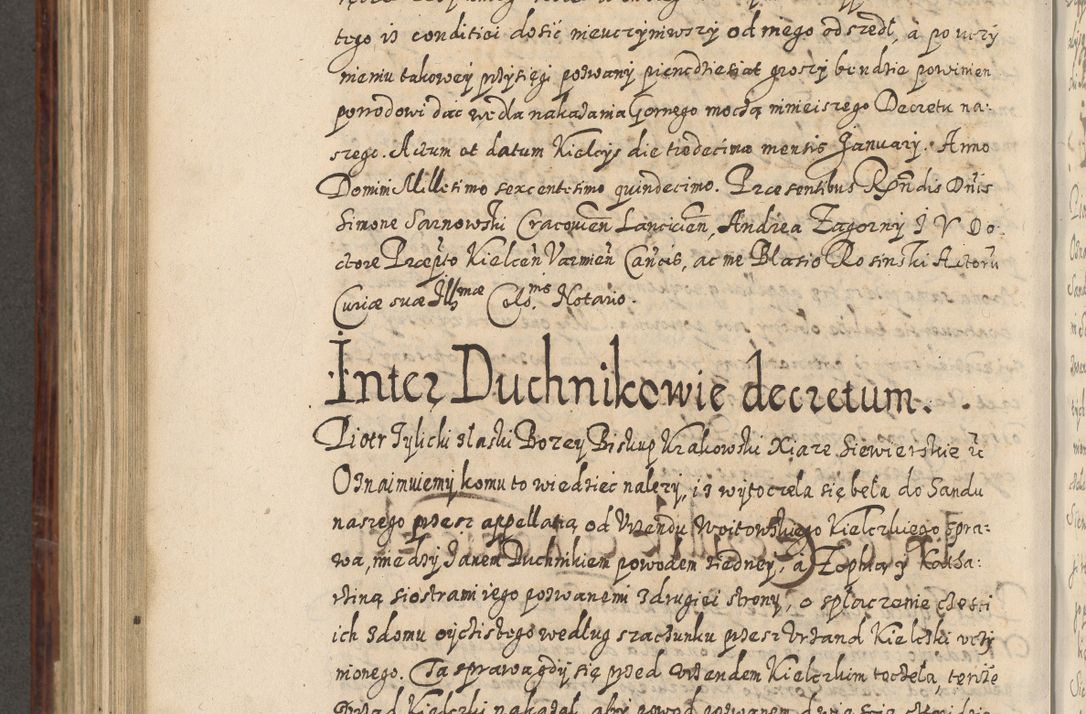 tego is conditiei dosić nieuczyniwszy od niego odszedł, a po uczy
nieniu takowey przysięgi pozwany piendziesiat groszy bendzie powinien
powodowi dac wedla nakazania jornego moczą ninieiszego Decretu na:
szego. Actum et datum Kielcys die tredecima mensis Januarij. Anno
Domini Millesimo sexcentesimo quindecimo. Præsentibus Rndis Dnis
Simone Sarnowski Cracouien Lancicien, Andrea Zagorny J V Do:
ctore Præpto Kielcen Varmien Cancis, ac me Blasio Rosinski Actoru
Curiæ suæ Illmæ Celsmis Notario.
Inter Duchnikowie decretum.
Piotr Tylicki z łaski Bozey Biskup Krakowski Xiąze Siewierskie etc
Oznaimuiemy komu to wiedziec nalezy, iz wytoczeła się beła do Sandu
naszego przez appellatią od Urzendu Woitowskiego Kielczkiego spra:
wa, miedzy Janem Duchnikiem powodem z iedney, a Zophią y Katha:
rziną siostrami iego pozwanemi z drugiei strony, o spłaczenie części
ich z domu oyczistego według szacunku przez Urzand Kielczki uczy
nionego. Ta sprawa gdy się przed Urzendem Kielczkim toczeła, tenże
Urzad Kielczki nakazał, aby powod pozwanem